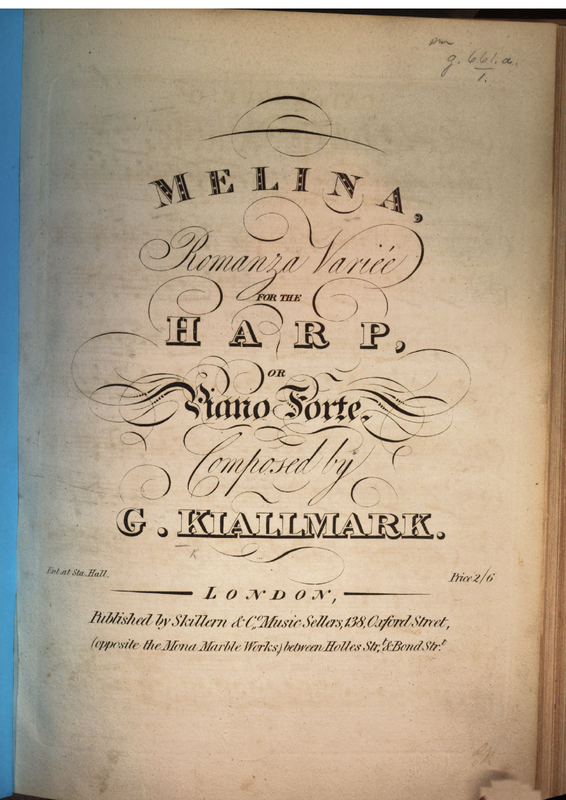 g. 661.a.
1.
MELINA,
Romanza Variée
FOR THE
HARP,
OR
Piano Forte.
Composed by
G. KIALLMARK.
K
Ent. at Sta. Hall.
Price 2/6
LONDON,
Published by Skillern & Co. Music Sellers, 138, Oxford Street,
(opposite the Mona Marble Works) between Holles Strt. & Bond Strt.